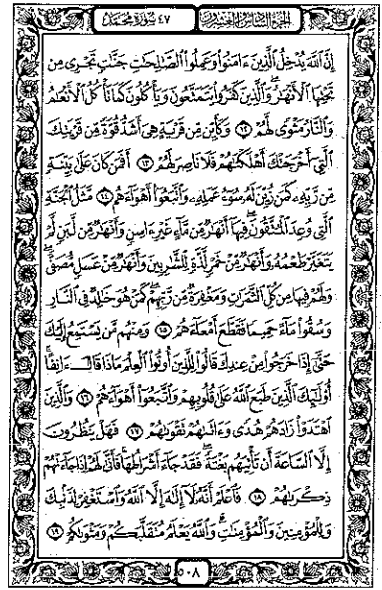 الجزء السادس والعشرون ٤٧ سورة محمد
إِنَّ ٱللَّهَ يُدْخِلُ ٱلَّذِينَ ءَامَنُوا۟ وَعَمِلُوا۟ ٱلصَّٰلِحَٰتِ جَنَّٰتٍ تَجْرِى مِن
تَحْتِهَا ٱلْأَنْهَٰرُ ۖ وَٱلَّذِينَ كَفَرُوا۟ يَتَمَتَّعُونَ وَيَأْكُلُونَ كَمَا تَأْكُلُ ٱلْأَنْعَٰمُ
وَٱلنَّارُ مَثْوًى لَّهُمْ ﴿١٢﴾ وَكَأَيِّن مِّن قَرْيَةٍ هِىَ أَشَدُّ قُوَّةً مِّن قَرْيَتِكَ
ٱلَّتِىٓ أَخْرَجَتْكَ أَهْلَكْنَٰهُمْ فَلَا نَاصِرَ لَهُمْ ﴿١٣﴾ أَفَمَن كَانَ عَلَىٰ بَيِّنَةٍ
مِّن رَّبِّهِۦ كَمَن زُيِّنَ لَهُۥ سُوٓءُ عَمَلِهِۦ وَٱتَّبَعُوٓا۟ أَهْوَآءَهُم ﴿١٤﴾ مَّثَلُ ٱلْجَنَّةِ
ٱلَّتِى وُعِدَ ٱلْمُتَّقُونَ ۖ فِيهَآ أَنْهَٰرٌ مِّن مَّآءٍ غَيْرِ ءَاسِنٍ وَأَنْهَٰرٌ مِّن لَّبَنٍ لَّمْ
يَتَغَيَّرْ طَعْمُهُۥ وَأَنْهَٰرٌ مِّنْ خَمْرٍ لَّذَّةٍ لِّلشَّٰرِبِينَ وَأَنْهَٰرٌ مِّنْ عَسَلٍ مُّصَفًّى ۖ
وَلَهُمْ فِيهَا مِن كُلِّ ٱلثَّمَرَٰتِ وَمَغْفِرَةٌ مِّن رَّبِّهِمْ ۖ كَمَنْ هُوَ خَٰلِدٌ فِى ٱلنَّارِ
وَسُقُوا۟ مَآءً حَمِيمًا فَقَطَّعَ أَمْعَآءَهُمْ ﴿١٥﴾ وَمِنْهُم مَّن يَسْتَمِعُ إِلَيْكَ
حَتَّىٰٓ إِذَا خَرَجُوا۟ مِنْ عِندِكَ قَالُوا۟ لِلَّذِينَ أُوتُوا۟ ٱلْعِلْمَ مَاذَا قَالَ ءَانِفًا ۚ
أُو۟لَٰٓئِكَ ٱلَّذِينَ طَبَعَ ٱللَّهُ عَلَىٰ قُلُوبِهِمْ وَٱتَّبَعُوٓا۟ أَهْوَآءَهُمْ ﴿١٦﴾ وَٱلَّذِينَ
ٱهْتَدَوْا۟ زَادَهُمْ هُدًى وَءَاتَىٰهُمْ تَقْوَىٰهُمْ ﴿١٧﴾ فَهَلْ يَنظُرُونَ
إِلَّا ٱلسَّاعَةَ أَن تَأْتِيَهُم بَغْتَةً ۖ فَقَدْ جَآءَ أَشْرَاطُهَا ۚ فَأَنَّىٰ لَهُمْ إِذَا جَآءَتْهُمْ
ذِكْرَىٰهُمْ ﴿١٨﴾ فَٱعْلَمْ أَنَّهُۥ لَآ إِلَٰهَ إِلَّا ٱللَّهُ وَٱسْتَغْفِرْ لِذَنۢبِكَ
وَلِلْمُؤْمِنِينَ وَٱلْمُؤْمِنَٰتِ ۗ وَٱللَّهُ يَعْلَمُ مُتَقَلَّبَكُمْ وَمَثْوَىٰكُمْ ﴿١٩﴾
٥٠٨